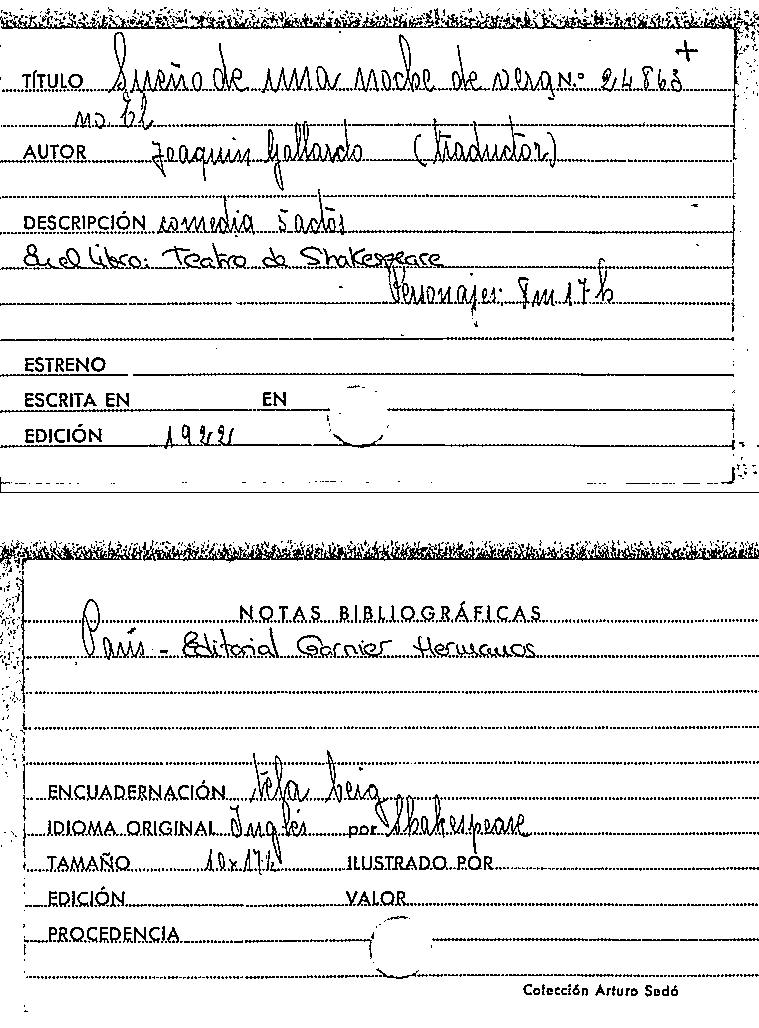 +
TÍTULO Sueño de una noche de vera N.º 24863
no. El
AUTOR Joaquin Gallardo (traductor)
DESCRIPCIÓN comedia 5 actos
En el libro: Teatro de Shakespeare
Personajes: 8m 17h
ESTRENO
ESCRITA EN EN
EDICIÓN 1922
NOTAS BIBLIOGRÁFICAS
París - Editorial Garnier Hermanos
ENCUADERNACIÓN tela beig
IDIOMA ORIGINAL Inglés por Shakespeare
TAMAÑO ILUSTRADO POR
EDICIÓN VALOR
PROCEDENCIA
Colección Arturo Sedó